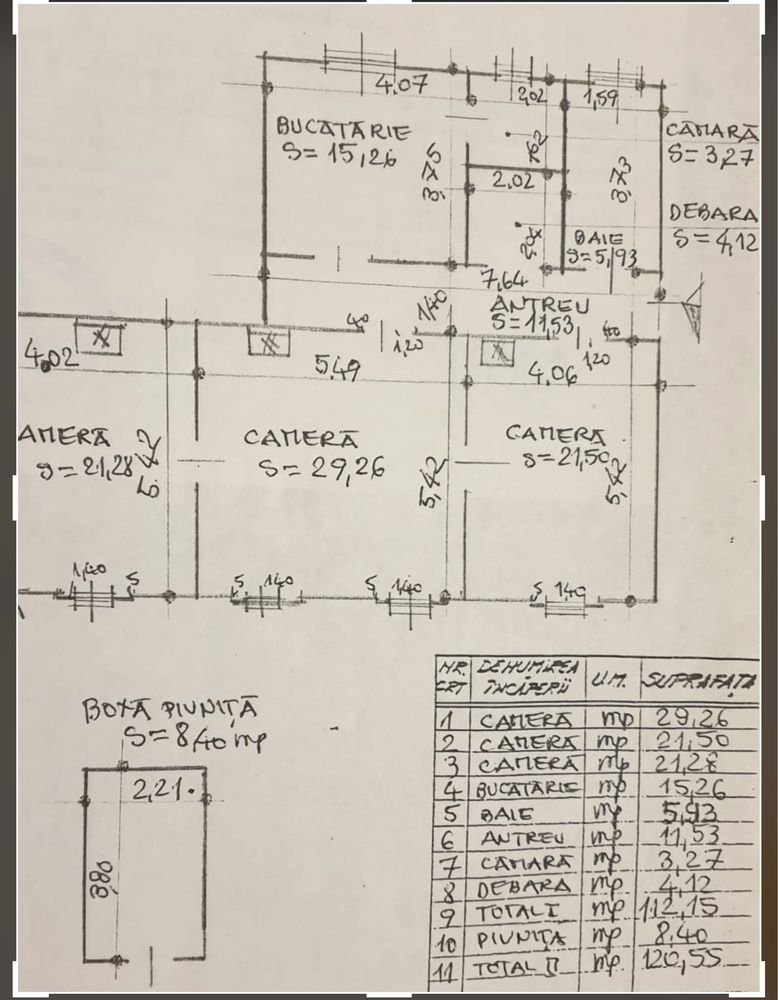 4,07
2,02
1,59
BUCATĂRIE
S=15,26
3,75
1,62
2,02
3,73
CĂMARĂ
S=3,27
DEBARA
S=4,12
2,04
BAIE
S=5,93
7,64
ANTREU
S=11,53
1,40
40
1,20
40
120
4,02
5,49
4,06
AMERĂ
S=21,28
5,42
CAMERĂ
S=29,26
5,42
CAMERĂ
S=21,50
5,42
1,40
5
5
140
5
140
5
140
BOXĂ PIVNIȚĂ
S=8,40 mp
2,21
3,80
NR. CRT DENUMIREA ÎNCĂPERII U.M. SUPRAFAȚA
1 CAMERĂ mp 29,26
2 CAMERĂ mp 21,50
3 CAMERĂ mp 21,28
4 BUCĂTĂRIE mp 15,26
5 BAIE mp 5,93
6 ANTREU mp 11,53
7 CĂMARĂ mp 3,27
8 DEBARA mp 4,12
9 TOTAL I mp 112,15
10 PIVNIȚA mp 8,40
11 TOTAL II mp 120,55